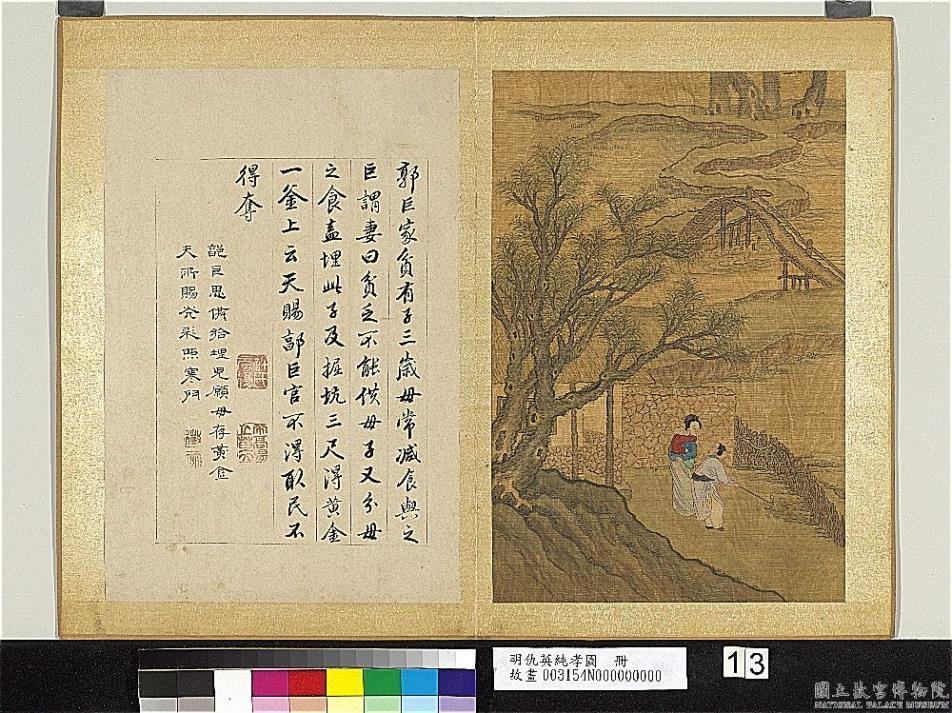 郭巨家貧有子三歲母常減食與之
巨謂妻曰貧乏不能供母子又分母
之食盍埋此子及掘坑三尺得黃金
一釜上云天賜郭巨官不得取民不
得奪
郭巨思供給埋兒願母存黃金
天所賜光彩照寒門
明仇英純孝圖 冊
故畫003154N000000000
13
國立故宮博物院
NATIONAL PALACE MUSEUM